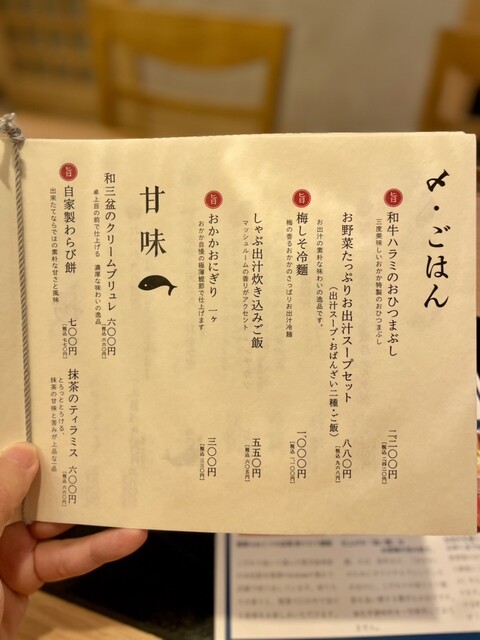 〆・ごはん
旨
和牛ハラミのおひつまぶし
三度美味しいおかか特製のおひつまぶし
二二〇〇円
[税込 二四二〇円]
お野菜たっぷりお出汁スープセット
(出汁スープ・おばんざい二種・ご飯)
お出汁の素朴な味わいの逸品です。
八八〇円
[税込 九六八円]
旨
梅しそ冷麺
梅の香るおかかのさっぱりお出汁冷麺
一〇〇〇円
[税込 一一〇〇円]
しゃぶ出汁炊き込みご飯
マッシュルームの香りがアクセント
五五〇円
[税込 六〇五円]
旨
おかかおにぎり 一ヶ
おかか自慢の極薄鰹節で仕上げます
三〇〇円
[税込 三三〇円]
甘味
和三盆のクリームブリュレ 六〇〇円
卓上目の前で仕上げる 濃厚な味わいの逸品
[税込 六六〇円]
旨
自家製わらび餅 七〇〇円
出来たてならではの素朴な甘さと風味
[税込 七七〇円]
抹茶のティラミス 六〇〇円
とろっととろける、
抹茶の甘味と苦みが上品な一品
[税込 六六〇円]